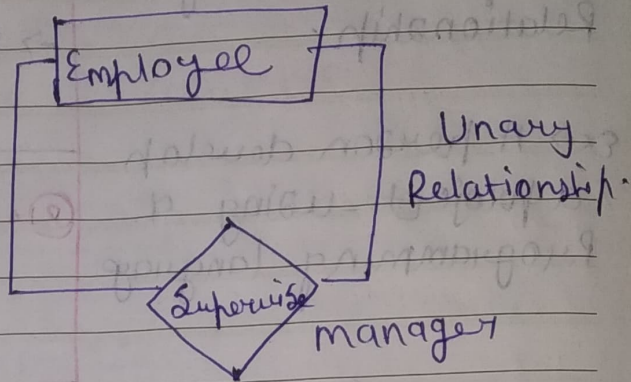 Employee
Unary
Relationship.
Supervise
manager